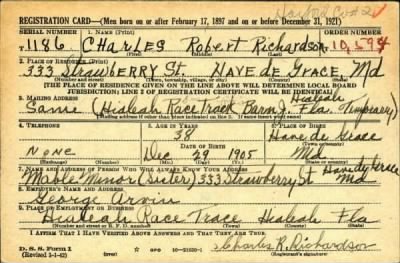 Harford Co #2
REGISTRATION CARD—(Men born on or after February 17, 1897 and on or before December 31, 1921)
SERIAL NUMBER 1. NAME (Print) ORDER NUMBER
1186 CHARLES Robert Richardson 10,594
(First) (Middle) (Last)
2. PLACE OF RESIDENCE (Print)
333 Strawberry St. HAVE de GRACE Md
(Number and street) (Town, township, village, or city) (County) (State)
[THE PLACE OF RESIDENCE GIVEN ON THE LINE ABOVE WILL DETERMINE LOCAL BOARD
JURISDICTION; LINE 2 OF REGISTRATION CERTIFICATE WILL BE IDENTICAL]
3. MAILING ADDRESS
Same (Hialeah Race Track Barn J. Hialeah Fla. Temporary)
[Mailing address if other than place indicated on line 2. If same insert word same]
4. TELEPHONE 5. AGE IN YEARS 6. PLACE OF BIRTH
38 Have de Grace
DATE OF BIRTH (Town or county)
None Dec 29 1905 Md
(Mo.) (Day) (Yr.) (State or country)
7. NAME AND ADDRESS OF PERSON WHO WILL ALWAYS KNOW YOUR ADDRESS
Mable Minor (Sister) 333 Strawberry St Have de Grace Md
8. EMPLOYER'S NAME AND ADDRESS
George Arvin
9. PLACE OF EMPLOYMENT OR BUSINESS
Hialeah Race Trace Hialeah Fla
(Number and street or R. F. D. number) (Town) (County) (State)
I AFFIRM THAT I HAVE VERIFIED ABOVE ANSWERS AND THAT THEY ARE TRUE.
D. S. S. Form 1
(Revised 3-1-42) GPO Charles R. Richardson